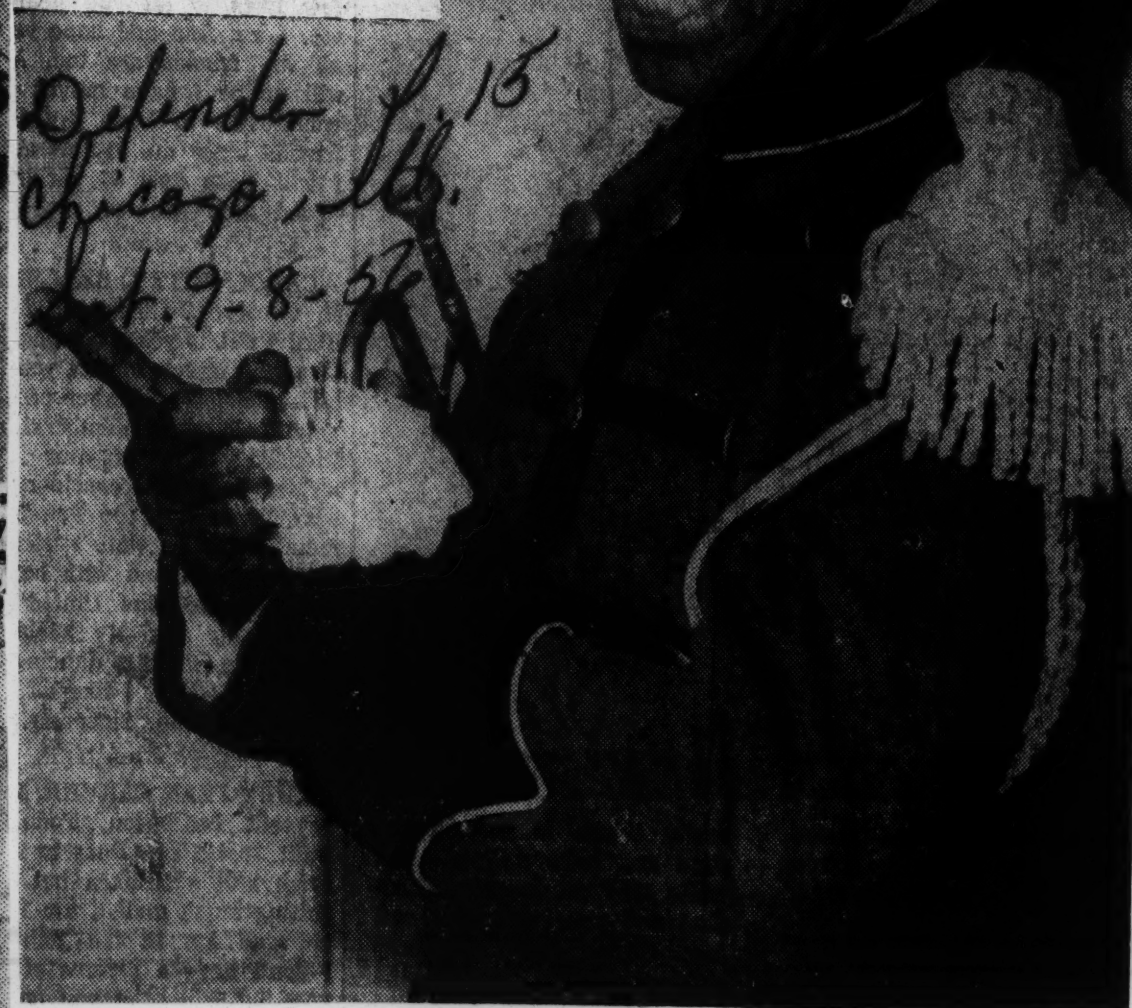 Defender p. 15
Chicago, Ill.
Sat. 9-8-56